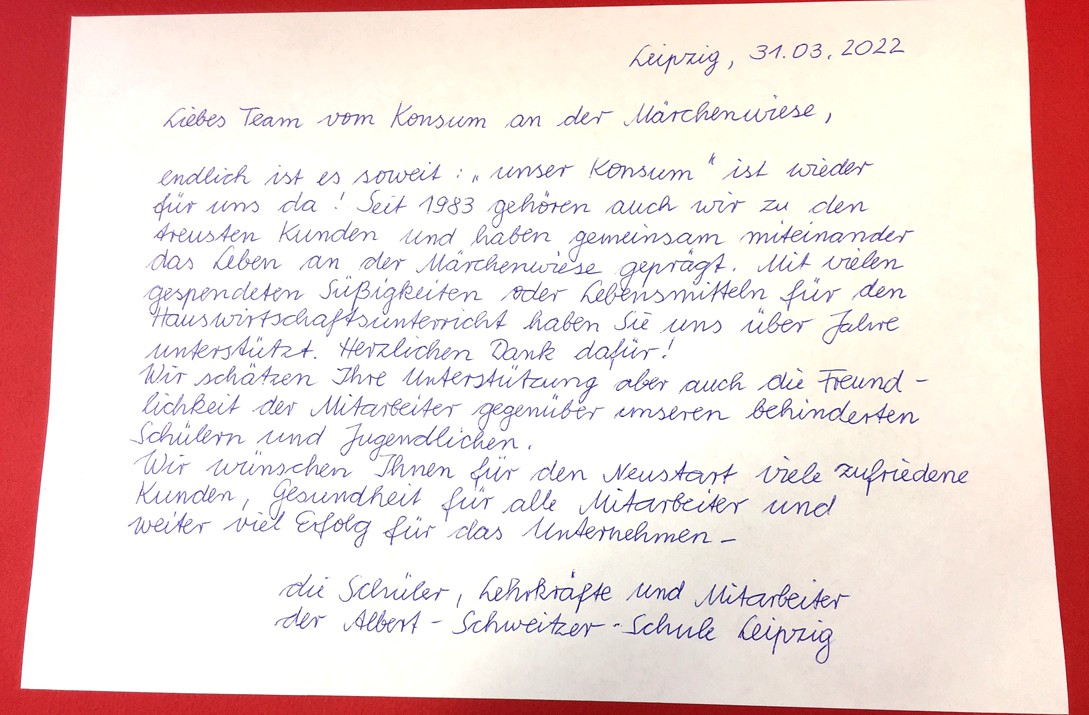 Leipzig, 31.03.2022
Liebes Team vom Konsum an der Märchenwiese,
endlich ist es soweit: „unser Konsum" ist wieder
für uns da! Seit 1983 gehören auch wir zu den
treusten Kunden und haben gemeinsam miteinander
das Leben an der Märchenwiese geprägt. Mit vielen
gespendeten Süßigkeiten oder Lebensmitteln für den
Hauswirtschaftsunterricht haben Sie uns über Jahre
unterstützt. Herzlichen Dank dafür!
Wir schätzen Ihre Unterstützung aber auch die Freund-
lichkeit der Mitarbeiter gegenüber unseren behinderten
Schülern und Jugendlichen.
Wir wünschen Ihnen für den Neustart viele zufriedene
Kunden, Gesundheit für alle Mitarbeiter und
weiter viel Erfolg für das Unternehmen –
die Schüler, Lehrkräfte und Mitarbeiter
der Albert-Schweitzer-Schule Leipzig